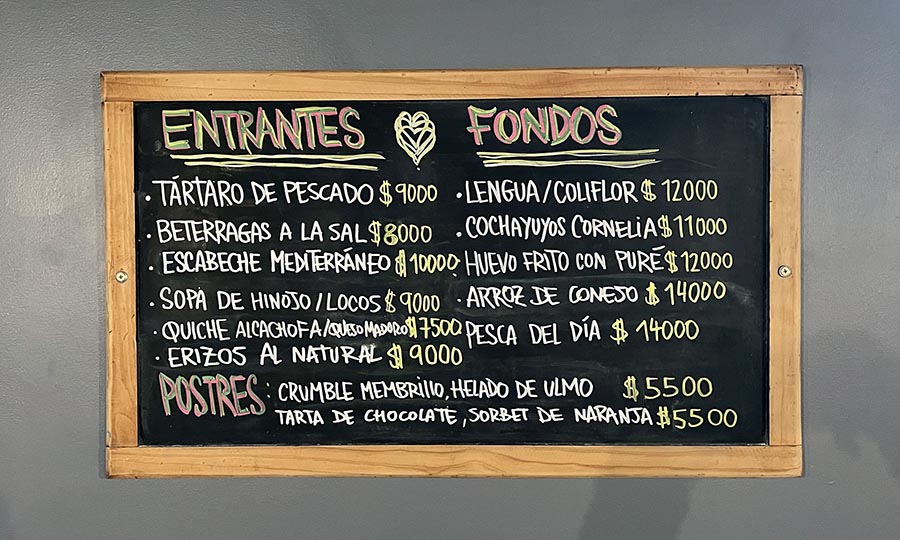 ENTRANTES
· TÁRTARO DE PESCADO $9000
· BETERRAGAS A LA SAL $8000
· ESCABECHE MEDITERRÁNEO $10000
· SOPA DE HINOJO/LOCOS $9000
· QUICHE ALCACHOFA/QUESO MADURO $7500
· ERIZOS AL NATURAL $9000
FONDOS
· LENGUA/COLIFLOR $12000
· COCHAYUYOS CORNELIA $11000
· HUEVO FRITO CON PURÉ $12000
· ARROZ DE CONEJO $14000
PESCA DEL DÍA $14000
POSTRES: CRUMBLE MEMBRILLO, HELADO DE ULMO $5500
TARTA DE CHOCOLATE, SORBET DE NARANJA $5500